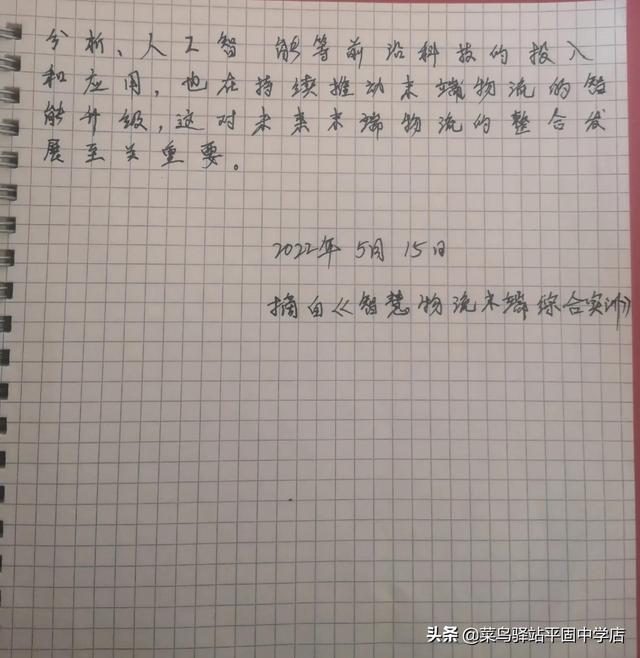 分析、人工智能等前沿科技的投入
和应用，也在持续推动末端物流的智
能升级，这对未来末端物流的整合发
展至关重要。
2022年 5月 15日
摘自《智慧物流末端综合实训》
头条 @菜鸟驿站平固中学店